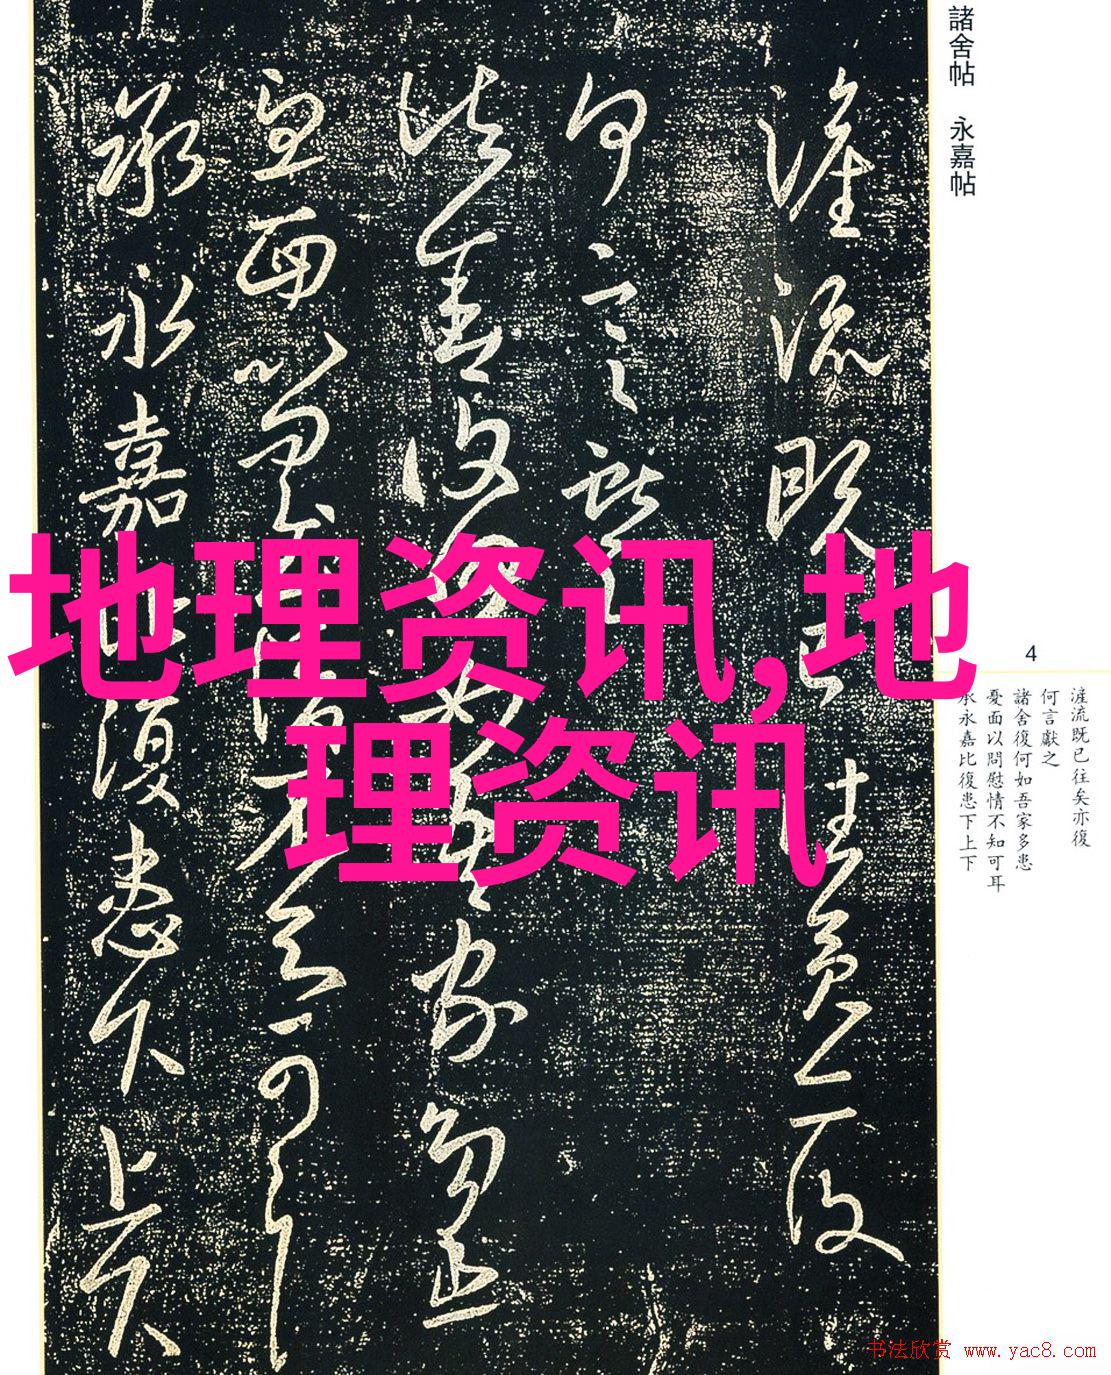 諸舍帖　永嘉帖
4
漼流既已往矣亦復
何言獻之
諸舍復何如吾家多患
憂面以問慰情不知可耳
承永嘉比復患下上下
地理资讯,地
理资讯
书法欣赏 www.yac8.com